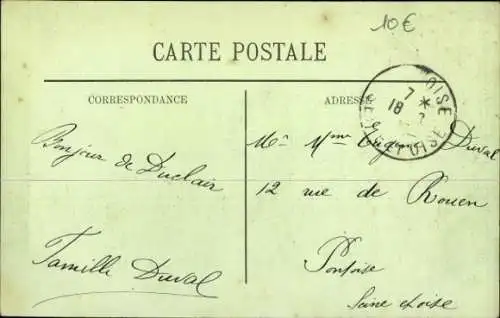 10€
CARTE POSTALE
CORRESPONDANCE
ADRESSE
7
18
OISE
ET OISE
Bonjour de Duclair
Famille Duval
Mr Mme Eugène Duval
12 rue de Rouen
Pontoise
Seine et oise